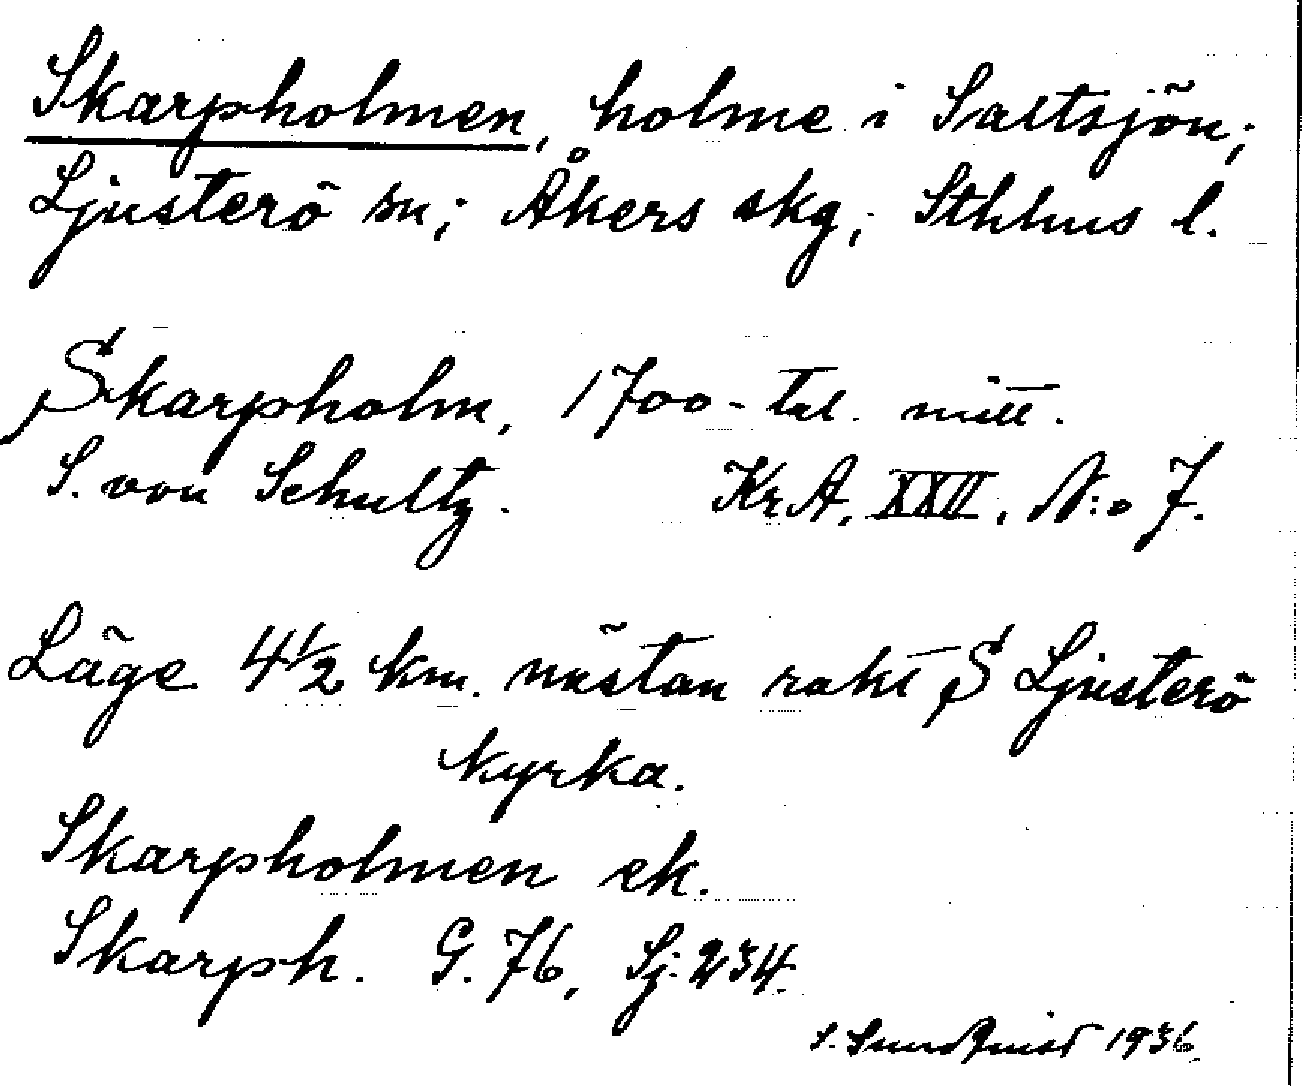 Skarpholmen, holme i Saltsjön;
Ljusterö sn; Åkers skg; Sthlms l.
Skarpholm, 1700-tal. mitt.
S. von Schultz. Kr.A, XXII, N:o 7.
Läge 4 1/2 km. nästan rakt S Ljusterö
kyrka.
Skarpholmen ek.
Skarph. G. 76, Sj. 234.
S. Sundqvist 1936